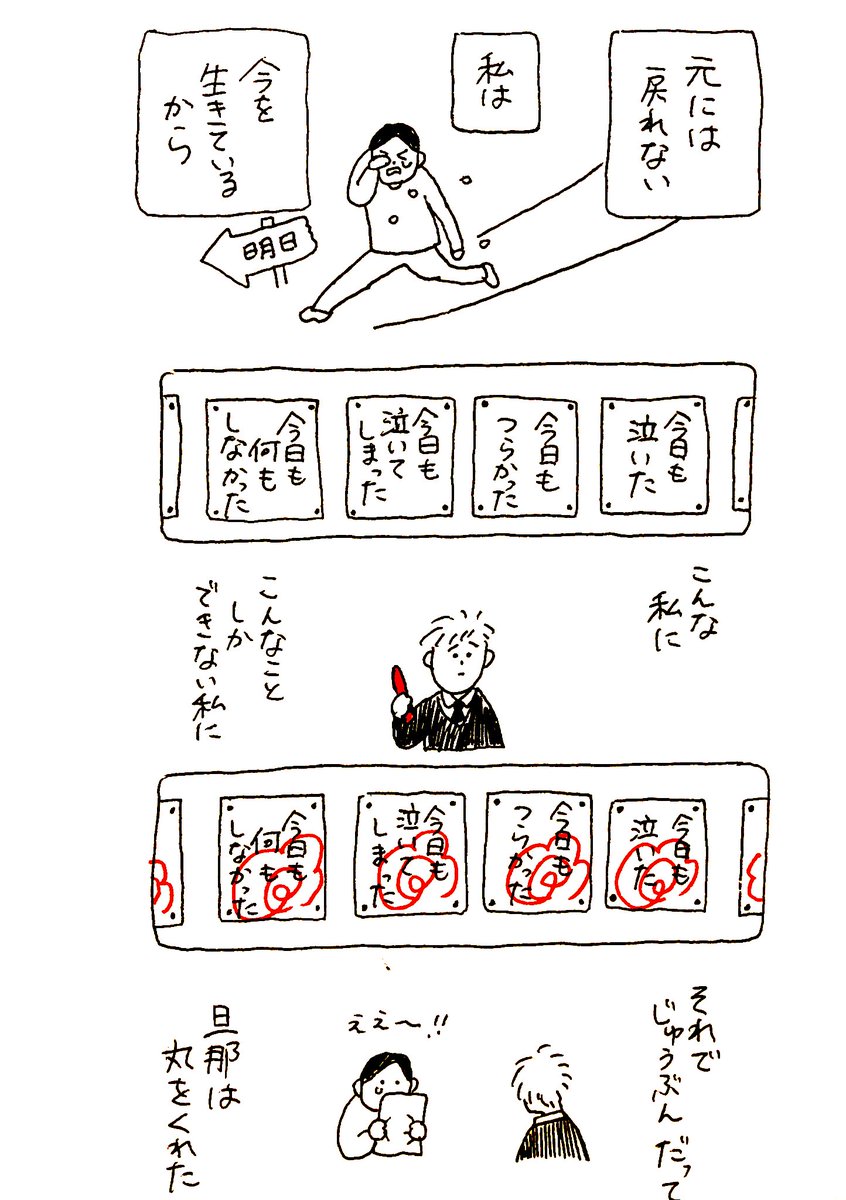 元には
戻れない
私は
今を
生きている
から
明日
今日も
泣いた
今日も
つらかった
今日も
泣いて
しまった
今日も
何も
しなかった
こんな
私に
こんなこと
しか
できない私に
今日も
泣いた
今日も
つらかった
今日も
泣いて
しまった
今日も
何も
しなかった
それで
じゅうぶんだって
ええ〜!!
旦那は
丸をくれた